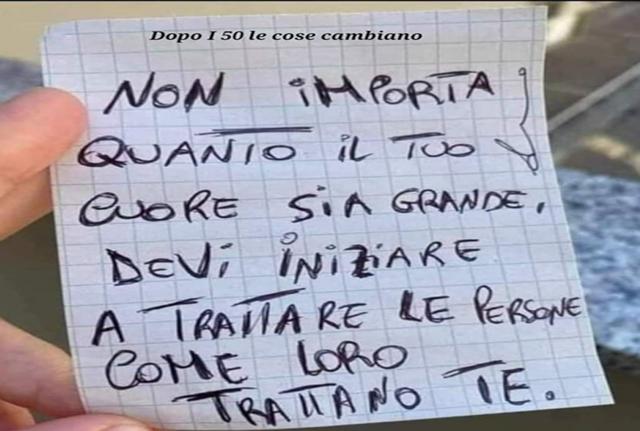 Dopo I 50 le cose cambiano
NON IMPORTA
QUANTO IL TUO
CUORE SIA GRANDE,
DEVI INIZIARE
A TRATTARE LE PERSONE
COME LORO
TRATTANO TE.